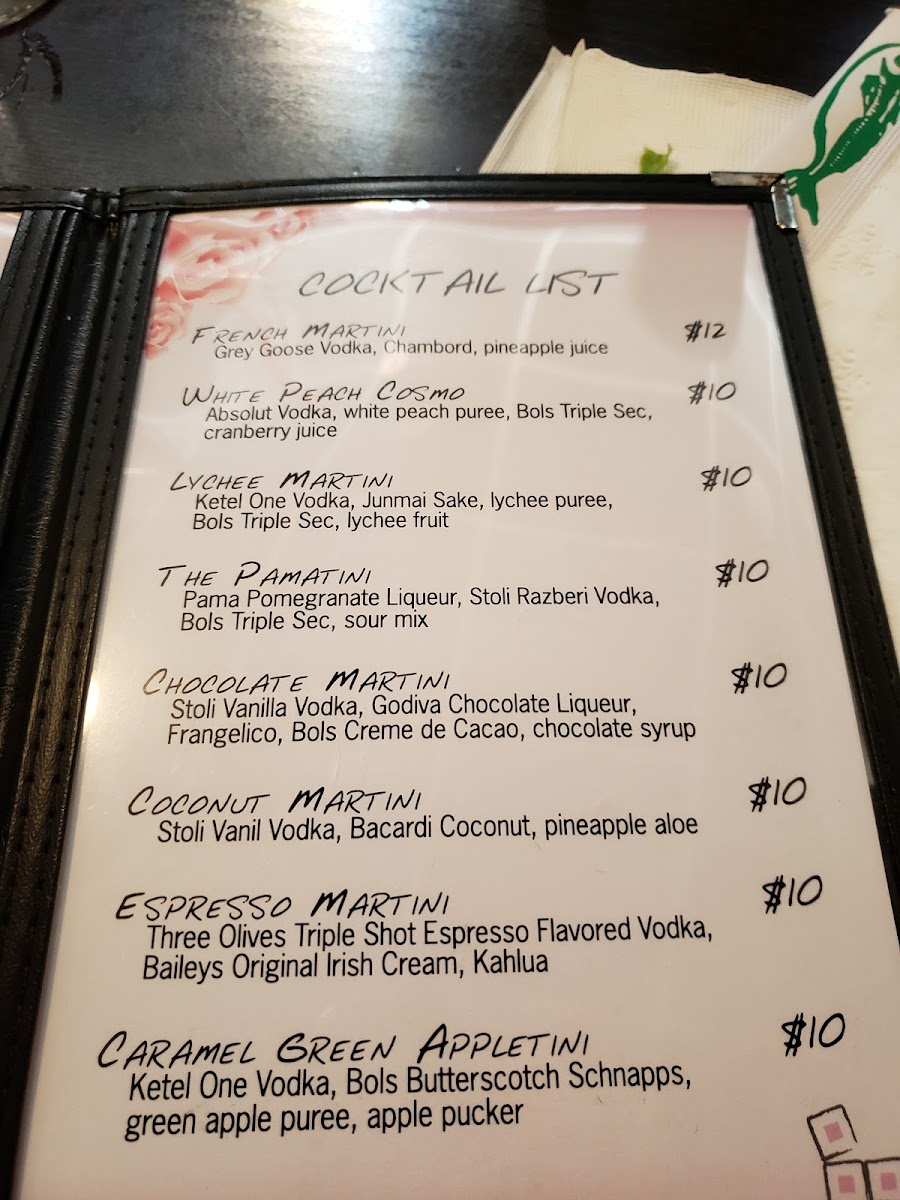 COCKTAIL LIST
FRENCH MARTINI $12
Grey Goose Vodka, Chambord, pineapple juice
WHITE PEACH COSMO $10
Absolut Vodka, white peach puree, Bols Triple Sec,
cranberry juice
LYCHEE MARTINI $10
Ketel One Vodka, Junmai Sake, lychee puree,
Bols Triple Sec, lychee fruit
THE PAMATINI $10
Pama Pomegranate Liqueur, Stoli Razberi Vodka,
Bols Triple Sec, sour mix
CHOCOLATE MARTINI $10
Stoli Vanilla Vodka, Godiva Chocolate Liqueur,
Frangelico, Bols Creme de Cacao, chocolate syrup
COCONUT MARTINI $10
Stoli Vanil Vodka, Bacardi Coconut, pineapple aloe
ESPRESSO MARTINI $10
Three Olives Triple Shot Espresso Flavored Vodka,
Baileys Original Irish Cream, Kahlua
CARAMEL GREEN APPLETINI $10
Ketel One Vodka, Bols Butterscotch Schnapps,
green apple puree, apple pucker